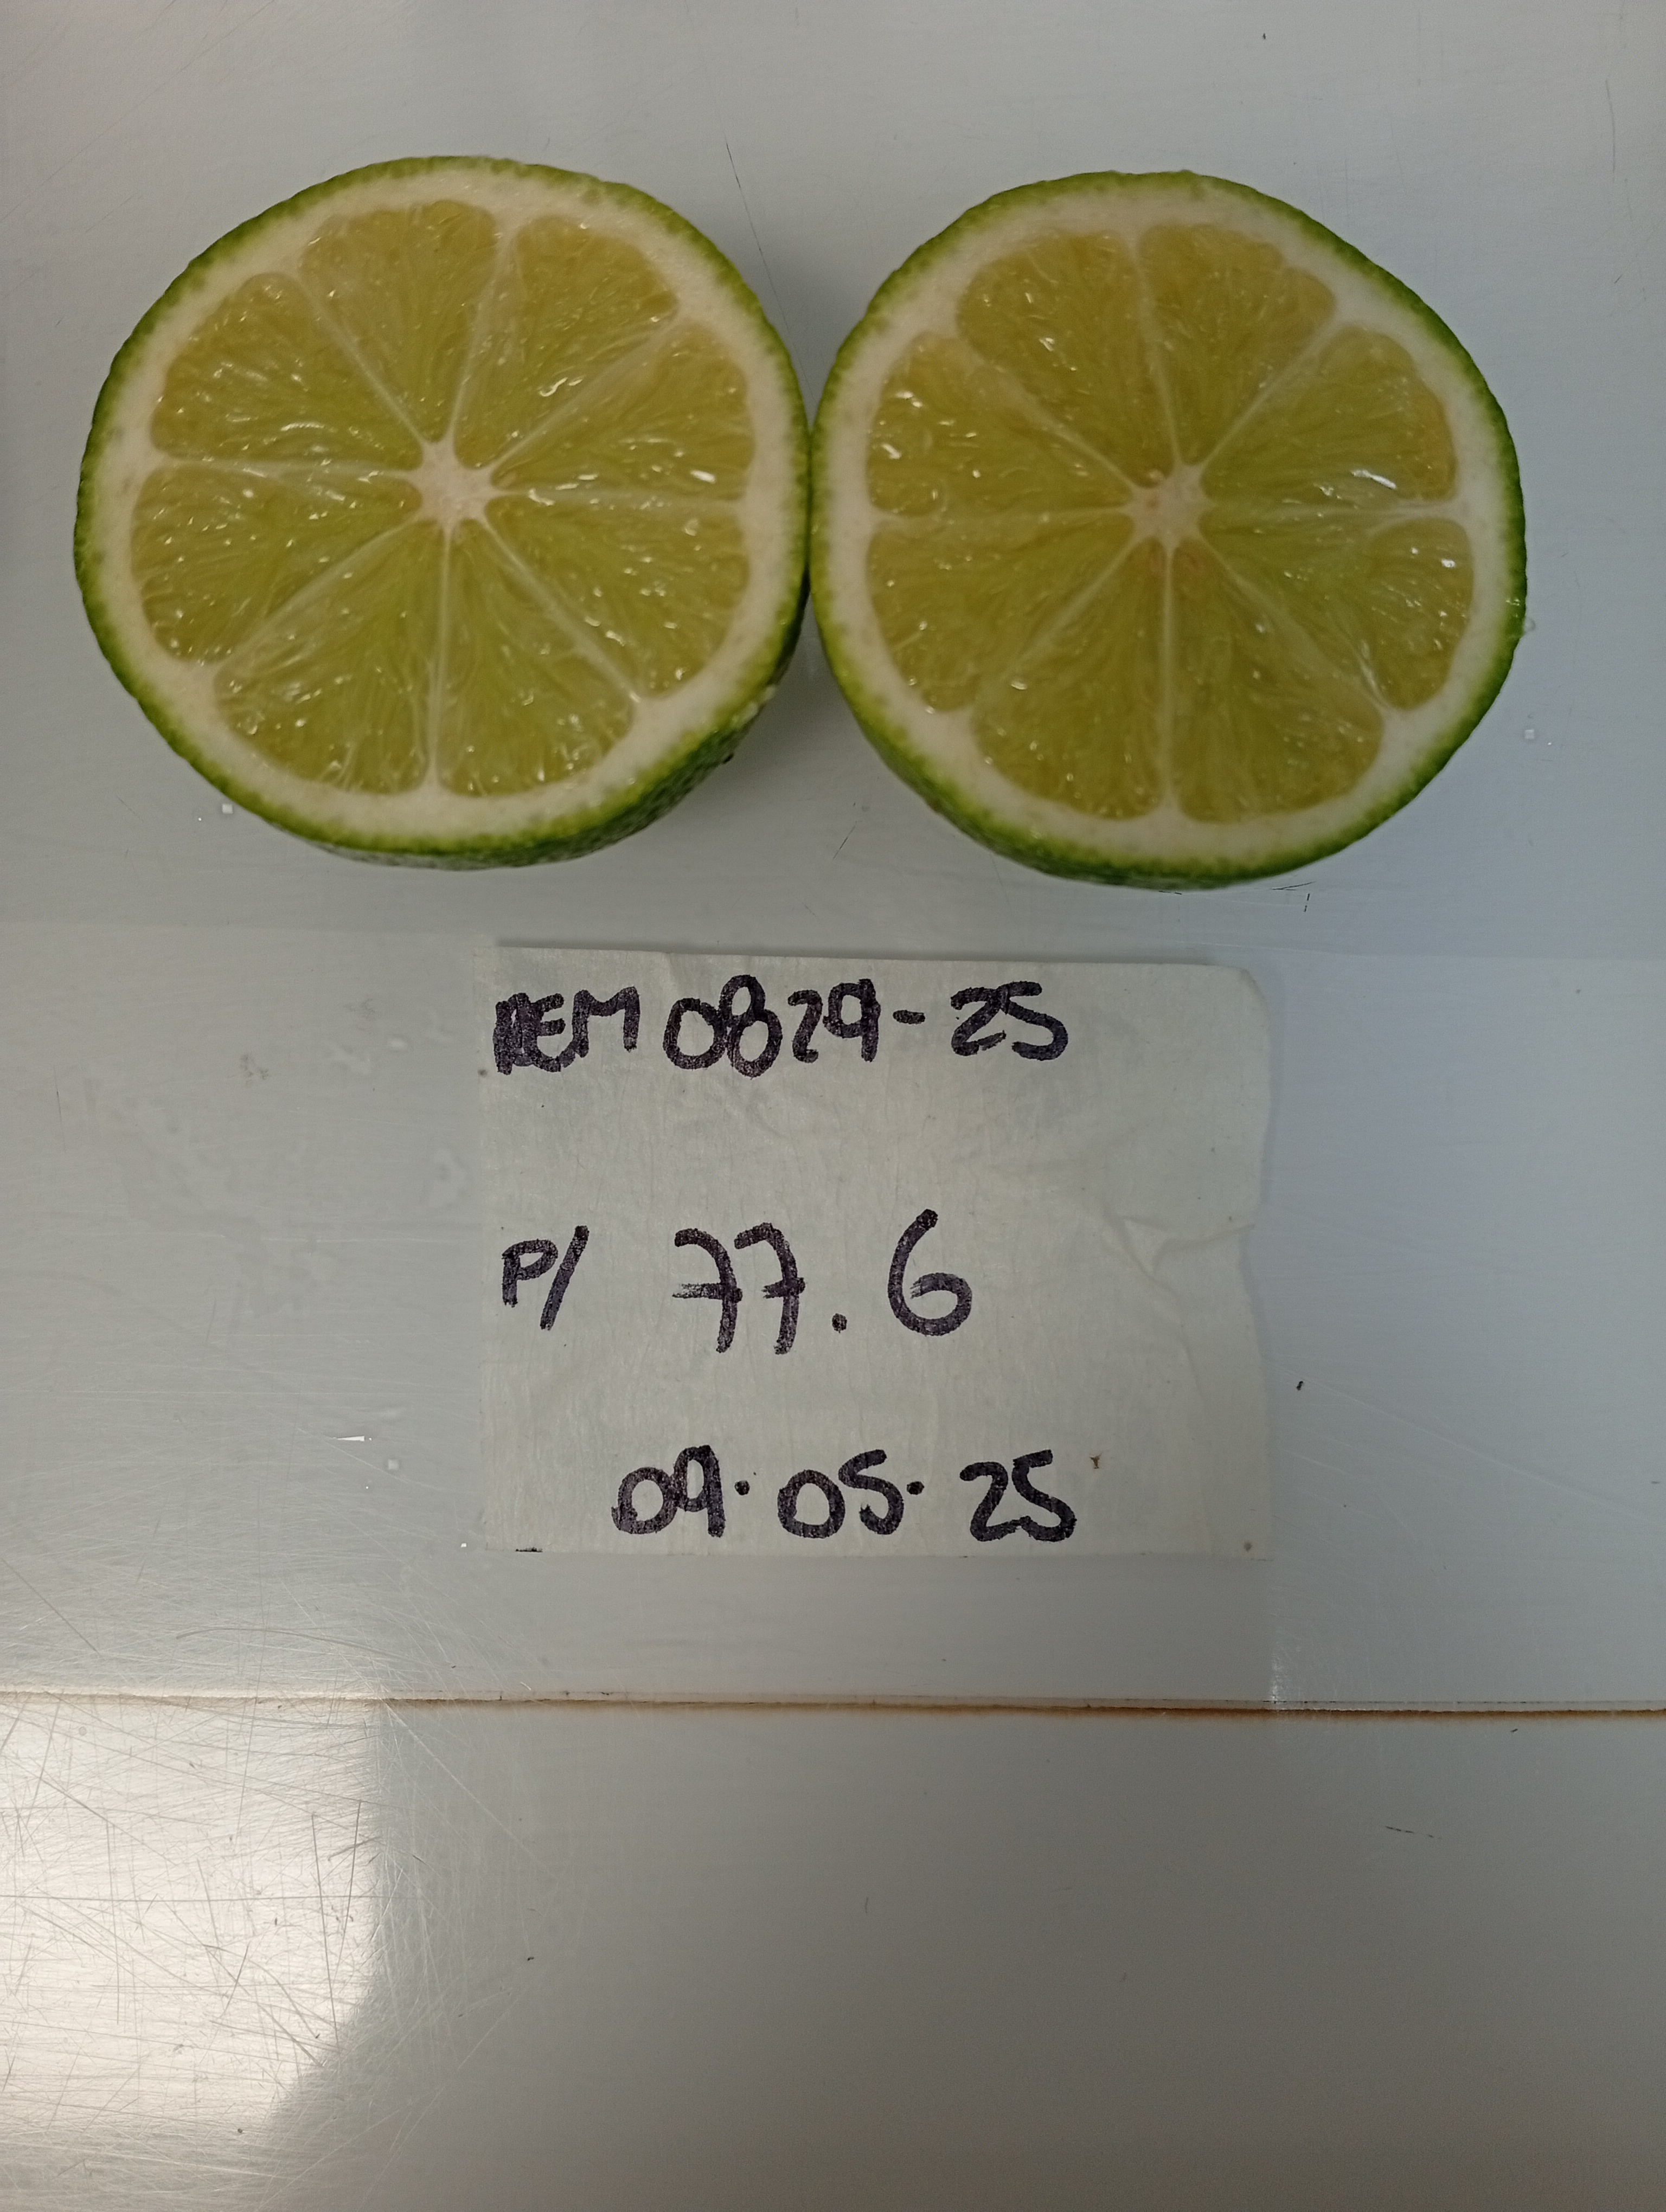 REM 0829-25
P/ 77.6
09.05.25